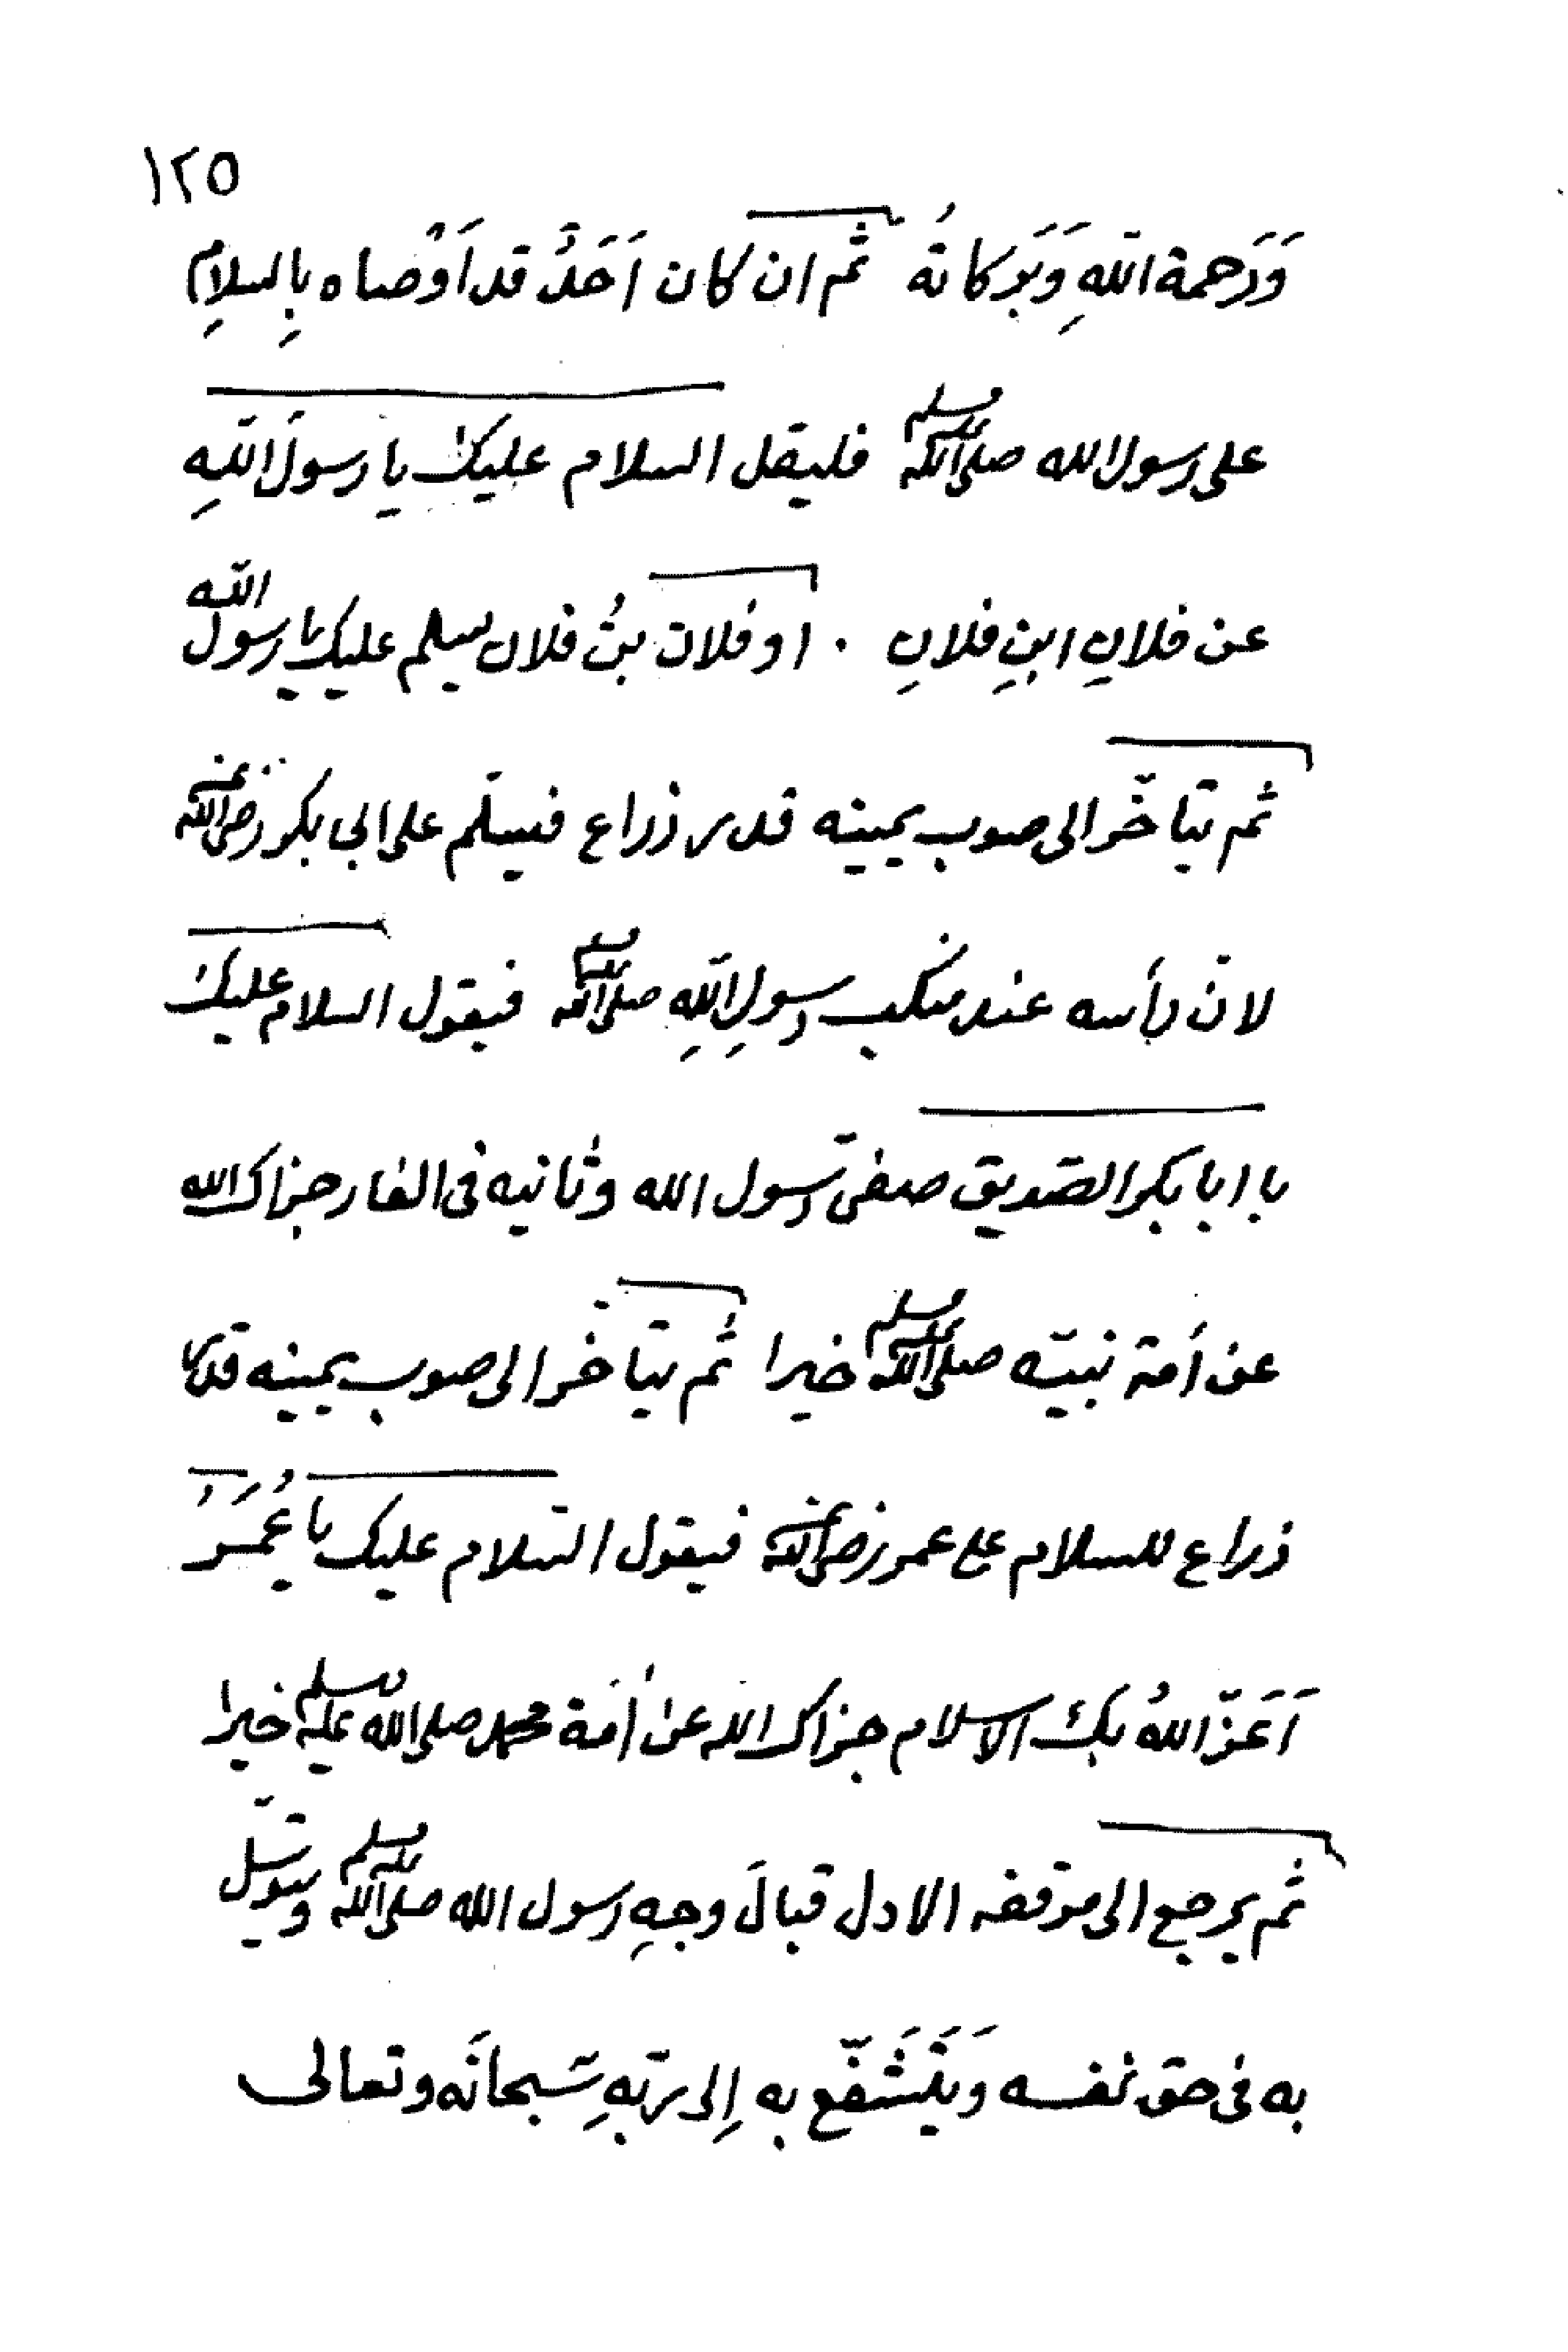 ١٢٥
وَرَحمة اللّٰهِ وَبَرَكاتهُ ثُم ان كان اَحَدٌ قد اَوْصاه بِالسلامِ
على رسول الله صلى الله عليه وسلم فليقل السلام عليك يا رسولَ اللّٰهِ
عن فلانِ ابنِ فلانِ . او فلان بنُ فلان يسلم عليك يا رسول اللّٰه
ثم يتأخّر الى صوب يمينه قدر ذراع فيسلّم على ابي بكر رضي الله عنه
لانّ رأسه عند منكب رسولِ اللّٰهِ صلى الله عليه وسلم فيقول السلام عليك
يا ابا بكر الصّديق صفىّ رسول الله وثانيه فى الغار جزاك الله
عن أمة نبيّه صلى الله عليه وسلم خيرا ثم يتأخر الى صوب يمينه قدر
ذراع للسلام على عمر رضي الله عنه فيقول السّلام عليك يا عُمَرُ
اَعَزّ اللهُ بك الاسلام جزاك الله عن اُمَة محمد صلى الله عليه وسلم خيرا
ثم يرجع الى موقفه الاول قبالَ وجهِ رسول الله صلى الله عليه وسلم ويتوسّل
به فى حق نفسه وَيَتَشَفّع به اِلى ربّهِ سُبحانَه وتعالى